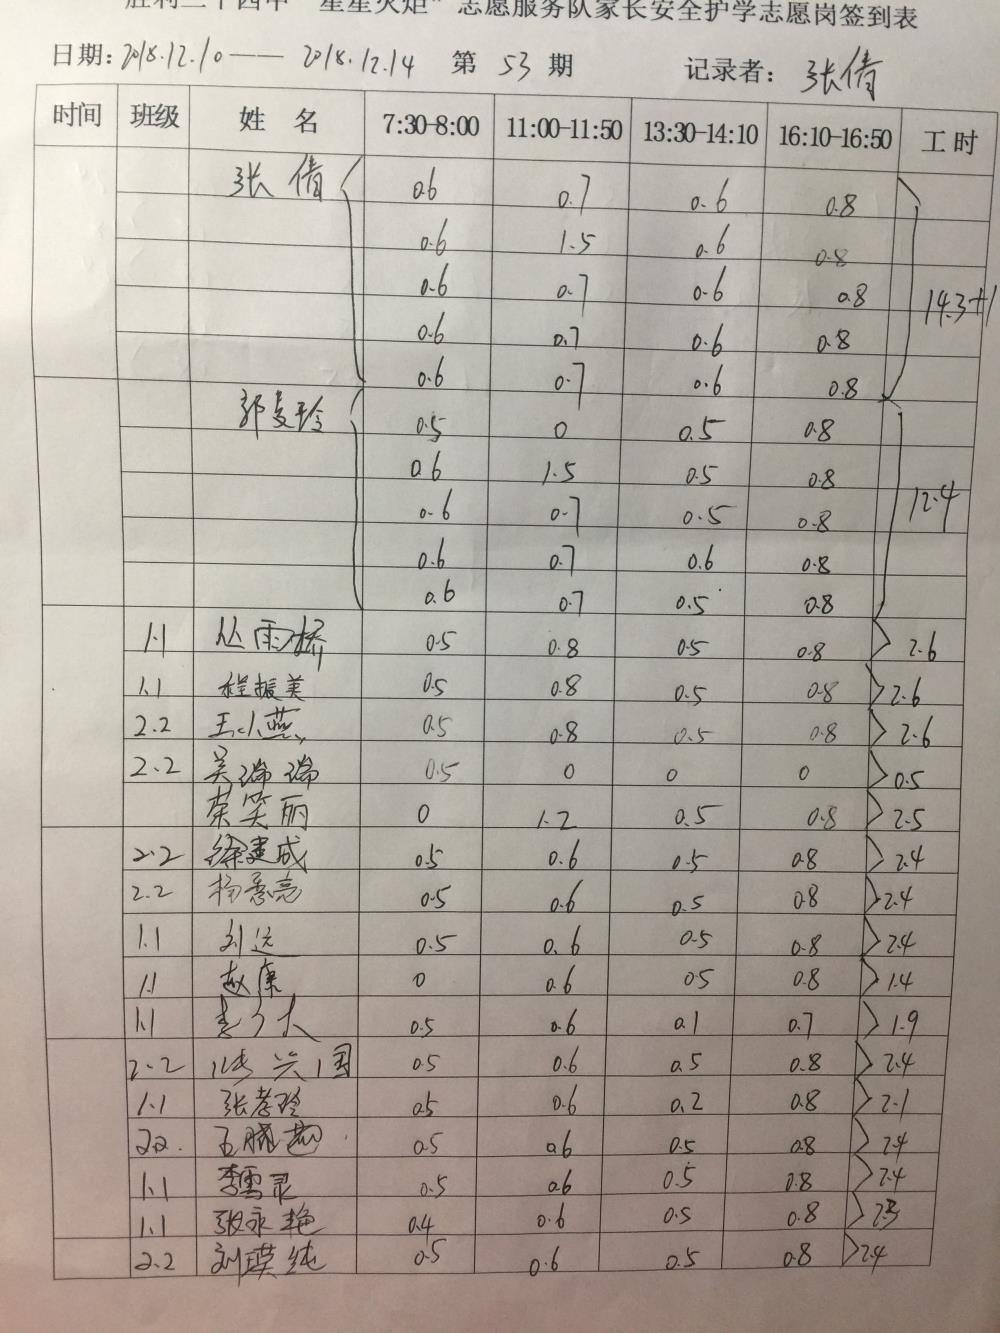 胜利二十四中“星星火炬”志愿服务队家长安全护学志愿岗签到表
日期: 2018.12.10—— 2018.12.14 第 53 期 记录者: 张倩
时间 班级 姓 名 7:30-8:00 11:00-11:50 13:30-14:10 16:10-16:50 工时
张倩 0.6 0.7 0.6 0.8
0.6 1.5 0.6 0.8
0.6 0.7 0.6 0.8 14.3+1
0.6 0.7 0.6 0.8
0.6 0.7 0.6 0.8
郭麦玲 0.5 0 0.5 0.8
0.6 1.5 0.5 0.8
0.6 0.7 0.5 0.8 12.4
0.6 0.7 0.6 0.8
0.6 0.7 0.5 0.8
1.1 丛雨桥 0.5 0.8 0.5 0.8 2.6
1.1 程振美 0.5 0.8 0.5 0.8 2.6
2.2 王小燕 0.5 0.8 0.5 0.8 2.6
2.2 吴瑞瑞 0.5 0 0 0 0.5
荣笑丽 0 1.2 0.5 0.8 2.5
2.2 徐建成 0.5 0.6 0.5 0.8 2.4
2.2 杨秀亮 0.5 0.6 0.5 0.8 2.4
1.1 刘远 0.5 0.6 0.5 0.8 2.4
1.1 赵康 0 0.6 0.5 0.8 1.4
1.1 0.5 0.6 0.1 0.7 1.9
2.2 兴国 0.5 0.6 0.5 0.8 2.4
1.1 张孝玲 0.5 0.6 0.2 0.8 2.1
2.2. 0.5 0.6 0.5 0.8 2.4
1.1 李雪灵 0.5 0.6 0.5 0.8 2.4
1.1 张永艳 0.4 0.6 0.5 0.8 2.3
2.2 刘瑛纯 0.5 0.6 0.5 0.8 2.4